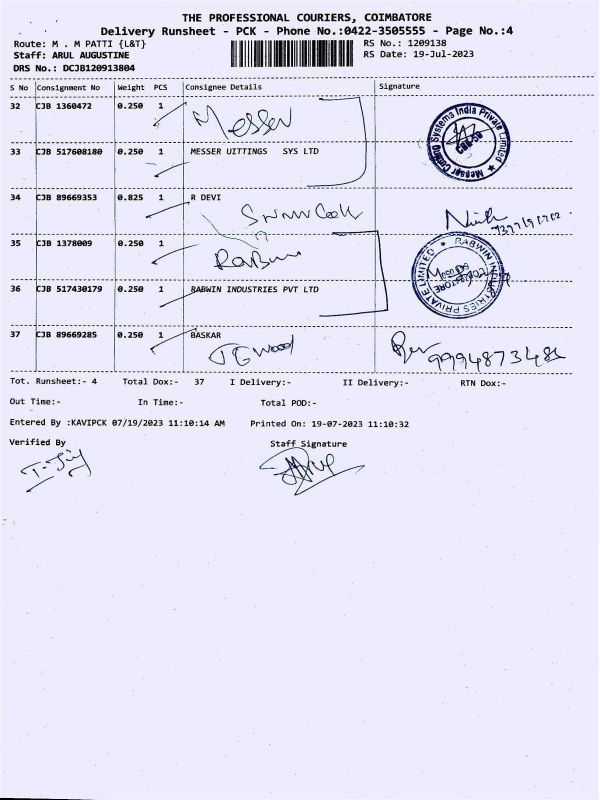 THE PROFESSIONAL COURIERS, COIMBATORE
Delivery Runsheet - PCK - Phone No.:0422-3505555 - Page No.:4
Route: M . M PATTI {L&T} RS No.: 1209138
Staff: ARUL AUGUSTINE RS Date: 19-Jul-2023
DRS No.: DCJB120913804
S No Consignment No Weight PCS Consignee Details Signature
32 CJB 1360472 0.250 1 Messer
33 CJB 517608180 0.250 1 MESSER UITTINGS SYS LTD
Messer Cutting Systems India Private Limited
34 CJB 89669353 0.825 1 R DEVI
35 CJB 1378009 0.250 1 Rabwin
36 CJB 517430179 0.250 1 RABWIN INDUSTRIES PVT LTD
RABWIN INDUSTRIES PRIVATE LIMITED
37 CJB 89669285 0.250 1 BASKAR
9994873481
Tot. Runsheet:- 4 Total Dox:- 37 I Delivery:- II Delivery:- RTN Dox:-
Out Time:- In Time:- Total POD:-
Entered By :KAVIPCK 07/19/2023 11:10:14 AM Printed On: 19-07-2023 11:10:32
Verified By Staff Signature